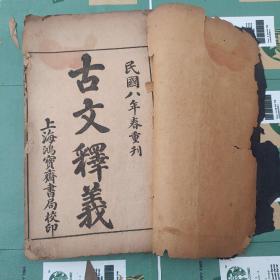 民國八年春重刋
古文釋義
上海鴻寶齋書局校印